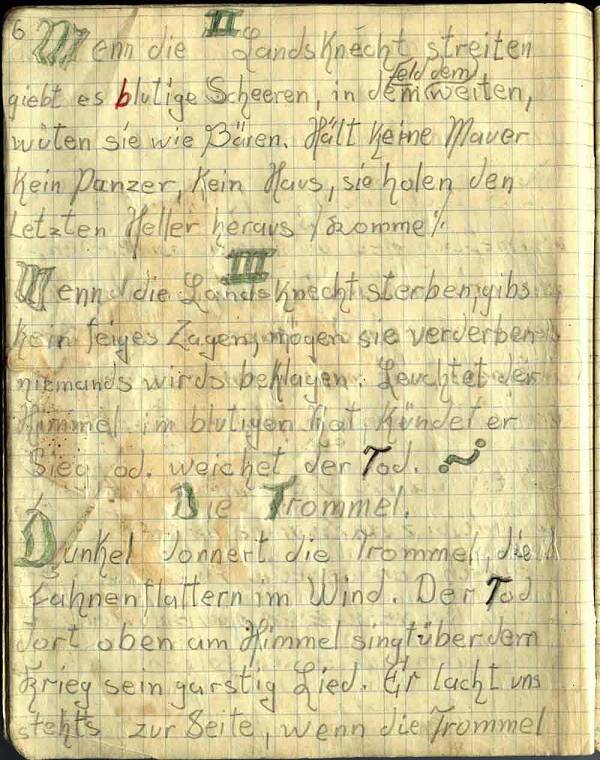 6
II
Wenn die Landsknecht streiten
feld dem
giebt es blutige Scheeren, in dem weiten,
wüten sie wie Bären. Hält keine Mauer
kein Panzer, kein Haus, sie holen den
Letzten Heller heraus /:komme:/
III
Wenn die Landsknecht sterben, gibs
kein feiges Zagen, mögen sie verderben
niemands wirds beklagen. Leuchtet der
Himmel im blutigen Rot kündet er
Sieg od. weichet der Tod.
Die Trommel.
Dunkel donnert die Trommel, die
Fahnen flattern im Wind. Der Tod
dort oben am Himmel singt über dem
Krieg sein garstig Lied. Er lacht uns
stehts zur Seite, wenn die Trommel